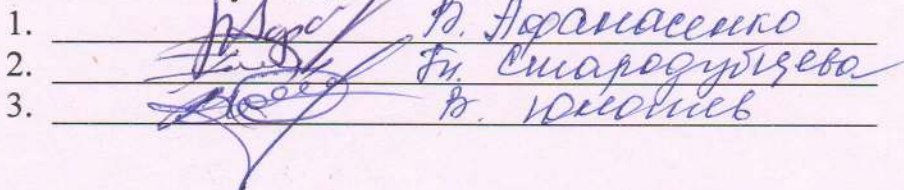 1. В. Афанасенко
2. Ел. Стародубцева
3. В. Юношев